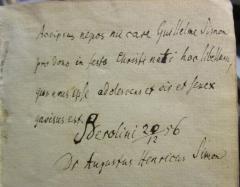 Accipias nepos mi care Guilielme Simon
pro dono in festo Christi nati hos libellos,
quos ipse adolescens et vir et senex
gavisus est.
Berolini 20/12 56
Dr Augustus Henricus Simon